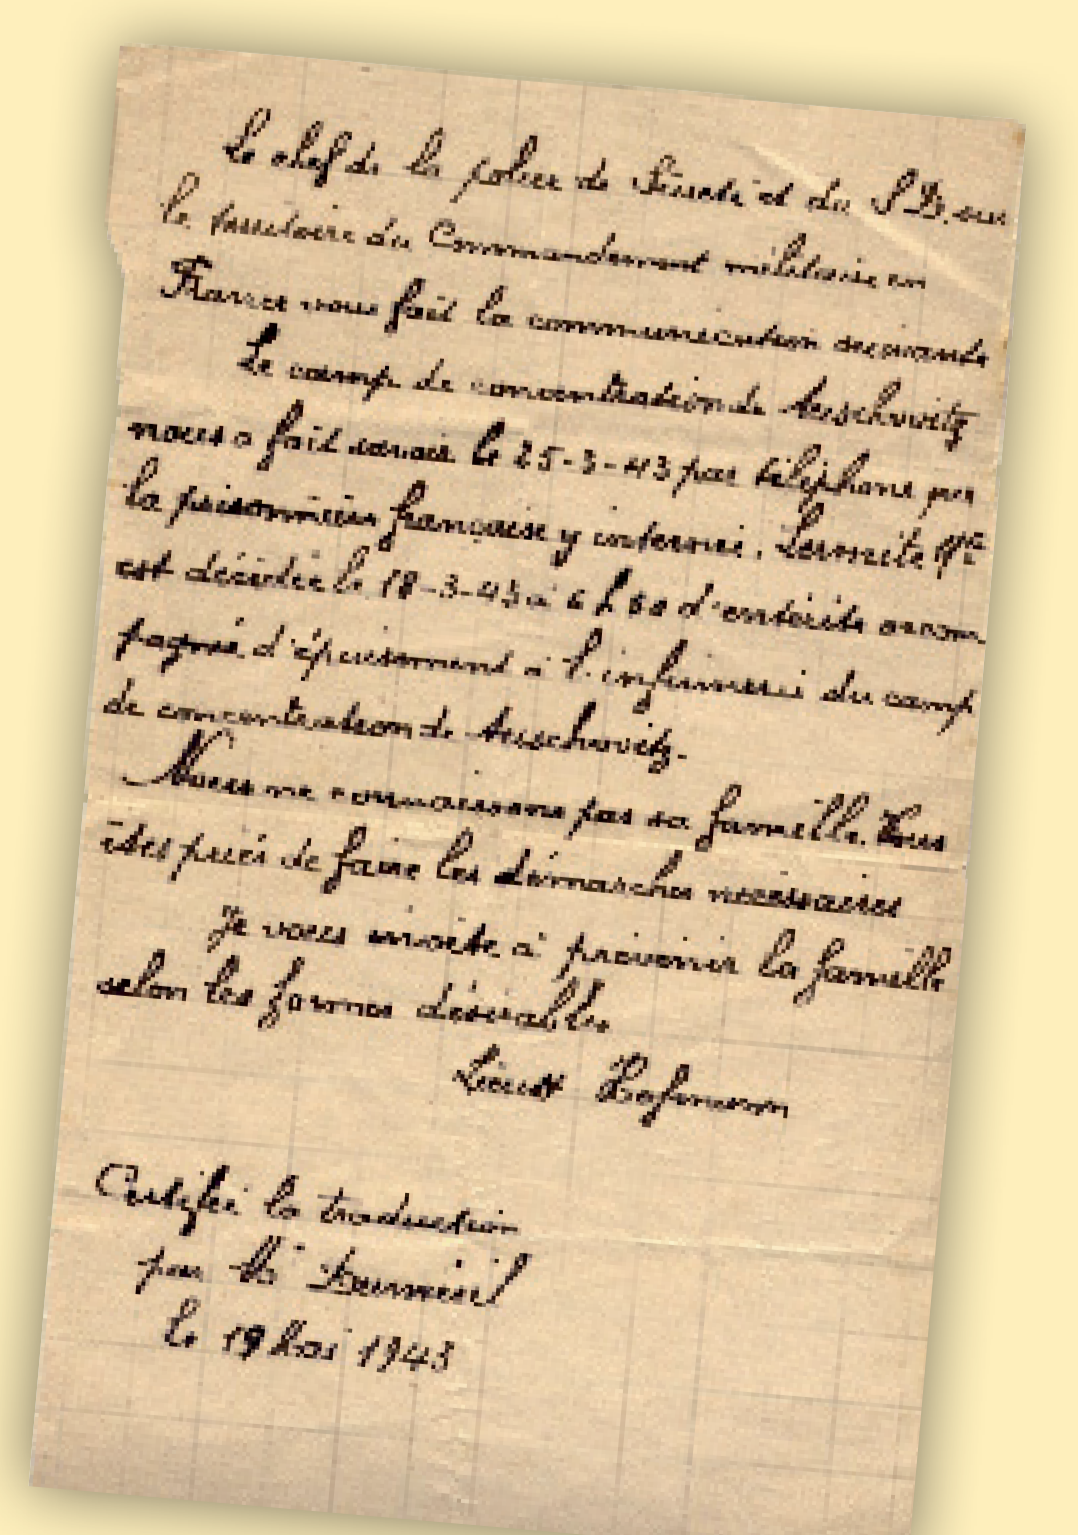 Le chef de la police de Sureté et du S.D. sur
le territoire du Commandement militaire en
France vous fait la communication suivante
Le camp de concentration de Auschwitz
nous a fait savoir le 25-3-43 par téléphone que
la prisonnière française y internée, Lermite
est décédée le 18-3-43 à d'entérite accom
pagnée d'épuisement à l'infirmerie du camp
de concentration de Auschwitz.
Nous ne connaissons pas sa famille. Vous
êtes priés de faire les démarches nécessaires
Je vous invite à prévenir la famille
selon les formes désirables
Lieut Hofmann
Certifié la traduction
par
le 19 Mai 1943